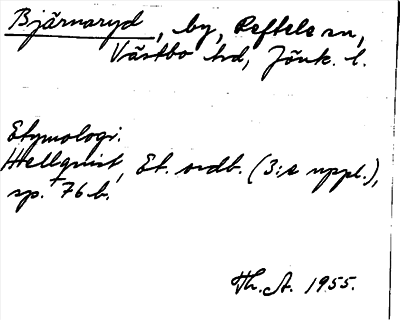 Bjärnaryd, by, Reftele sn,
Västbo hd, Jönk. l.
Etymologi.
Hellquist, Et. ordb. (3:e uppl.),
sp. 76 b.
Th. A. 1955.